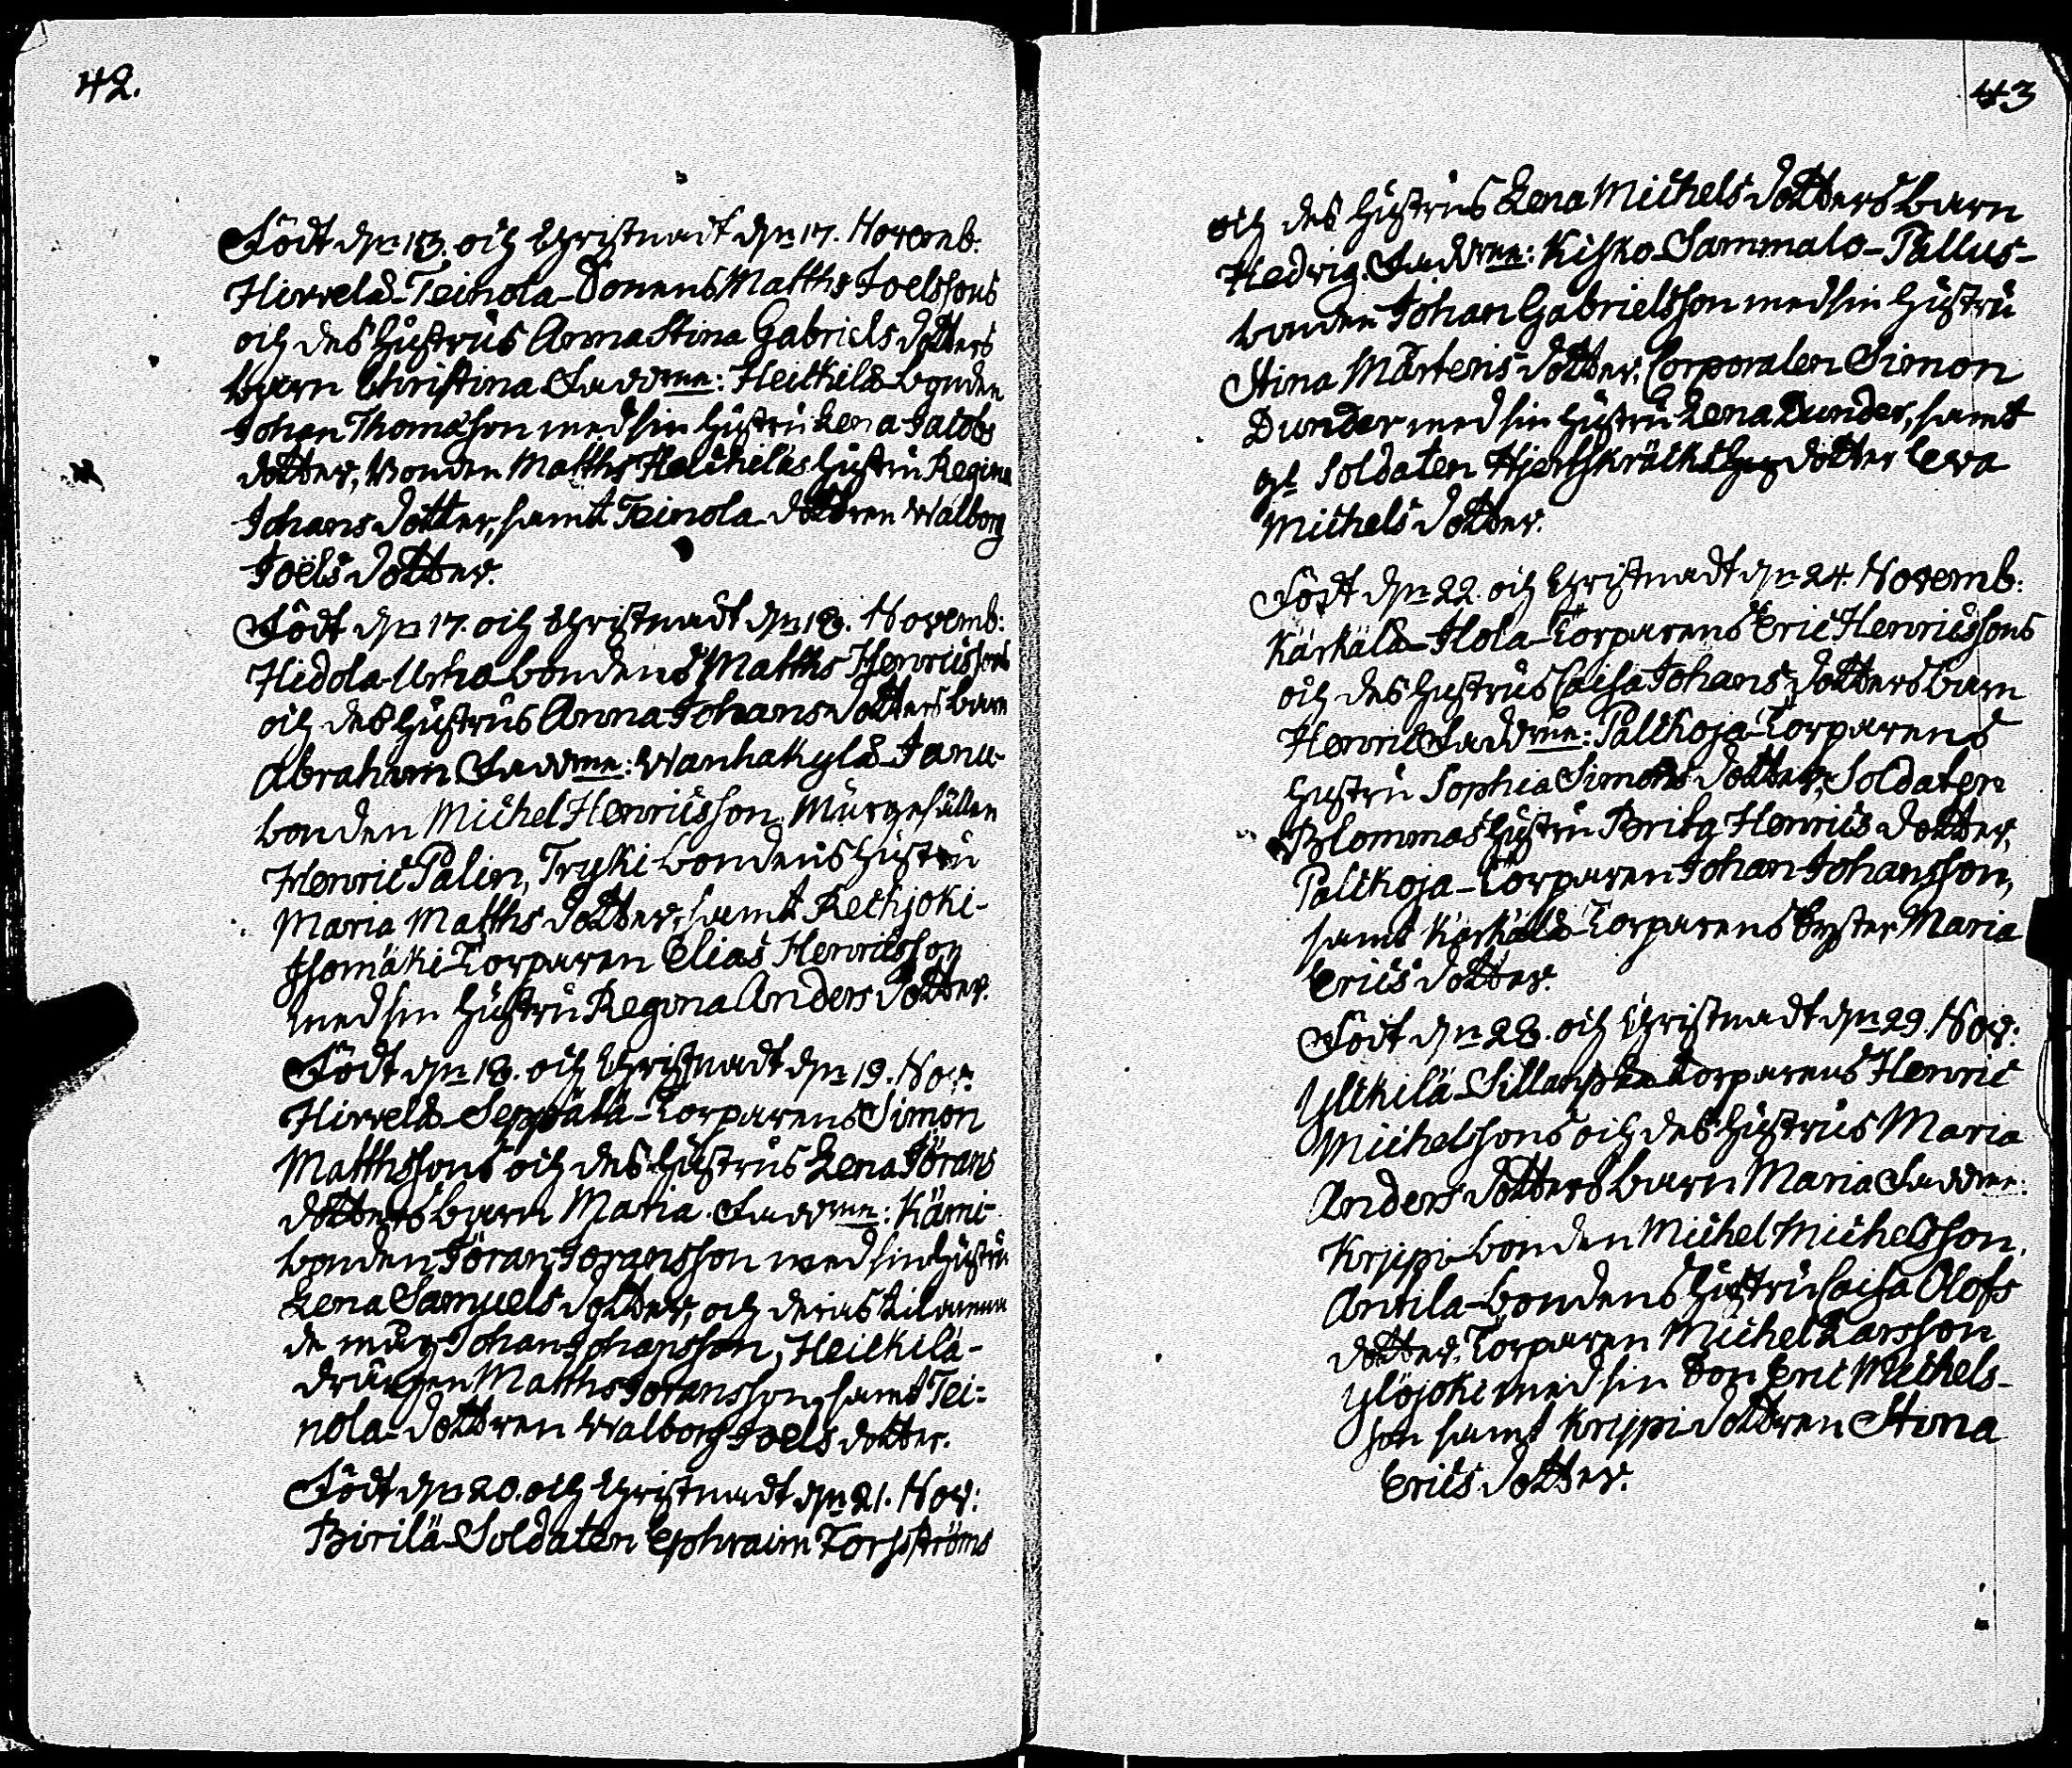 42.
Födt d:n 13. och Christnadt d:n 17. Novemb:
Hirvelä-Teinola-Sonens Matths Joelssons
och des hustrus Anna Stina Gabriels dotters
barn Christina Faddrar: Heickilä-bonden
Johan Thomasson med sin hustru Lena Jacobs
dotter, Bonden Matths Heickiläs hustru Regina
Johans dotter, samt Teinola-dottren Walborg
Joëls dotter.
Födt d:n 17. och Christnadt d:n 18. Novemb:
Hidola-Urha bondens Matths Henricssons
och des hustrus Anna Johans dotters barn
Abraham Faddrar: Wanhakylä-Janu-
bonden Michel Henricsson, Murgesällen
Henric Palin, Tryki bondens hustru
Maria Matths dotter, samt Reckjoki-
Isomäki-Torparen Elias Henricsson
med sin hustru Regina Anders dotter.
Födt d:n 18. och Christnadt d:n 19. Nov:
Hirvelä-Seppälä-Torparens Simon
Matthssons och des hustrus Lena Jörans
dotters barn Maria. Faddrar: Kämi-
bonden Jöran Joransson med sin hustru
Lena Samuels dotter, och deras tilämnan
de måg Johan Johansson, Heickilä-
drängen Matths Joransson, samt Tei-
nola-dottren Walborg Joels dotter.
Födt d:n 20. och Christnadt d:n 21. Nov:
Birilä-Soldaten Ephraim Forsströms
43
och des hustrus Lena Michels dotters barn
Hedvig. Faddrar: Kisko-Sammalo-Pallus-
bonden Johan Gabrielsson med sin hustru
Stina Mårtens dotter, Corporalen Simon
Dunder med sin hustru Lena Dunder, samt
gl Soldaten dotter Ewa
Michels dotter.
Födt d:n 22. och Christnadt d:n 24. Novemb:
Kärkälä-Ilola-Torparens Eric Henricssons
och des hustrus Caisa Johans dotters barn
Henric Faddrar: Palckoja-Torparens
hustru Sophia Simons dotter, Soldaten
Blommas hustru Brita Henrics dotter,
Palckoja-Torparen Johan Johansson,
samt Kärkälä-Torparens Syster Maria
Erics dotter.
Födt d:n 28. och Christnadt d:n 29. Nov:
Ylikilä-Sillanpää torparens Henric
Michelssons och des hustrus Maria
Anders dotters barn Maria Faddrar:
Krjppi-bonden Michel Michelsson,
Antila-bondens hustru Caisa Olofs
dotter, Torparen Michel Larsson
Ylöjoki med sin Son Eric Michels-
son samt Krjppi dottren Stina
Erics dotter.